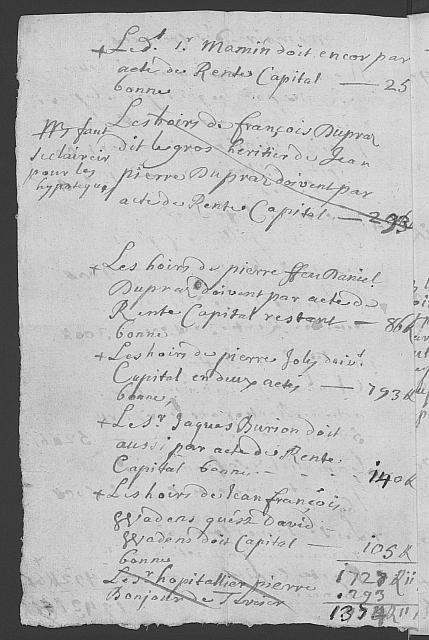 + Le d.t S.r Mamin doit encor par
acte de Rente Capital — 25
bonne
Les hoirs de françois Dupraz
dit le gros heritier de Jean
pierre Dupraz doivent par
acte de Rente Capital — 293
faut
seclaircir
pour les
hypoteques
+ Les hoirs de pierre ffeu Daniel
Dupraz doivent par acte de
Rente Capital restant — 86
bonne
+ Les hoirs de pierre Joly doiv.t
Capital en deux actes — 793
bonne
+ Le S.r Jaques Burion doit
aussi par acte de Rente
Capital bonne 140
+ Les hoirs de Jean françois
Wadens David
Wadens doit Capital — 105
bonne
Le S.r hopitallier pierre
Bonjour de
293